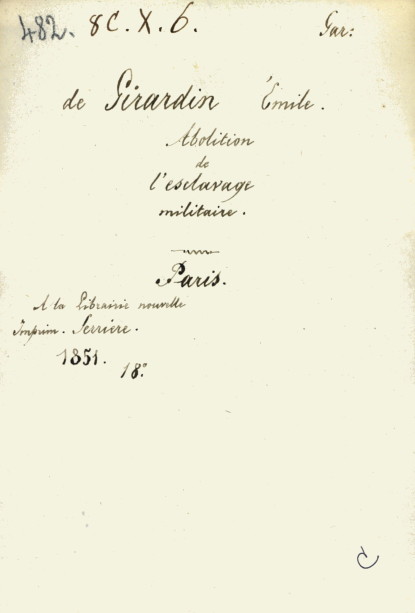 482. 8C. X. 6. Gar:
de Girardin Émile.
Abolition
de
l'esclavage
militaire.
Paris.
A la Librairie nouvelle
Imprim. Serrière.
1851.
18.°
C